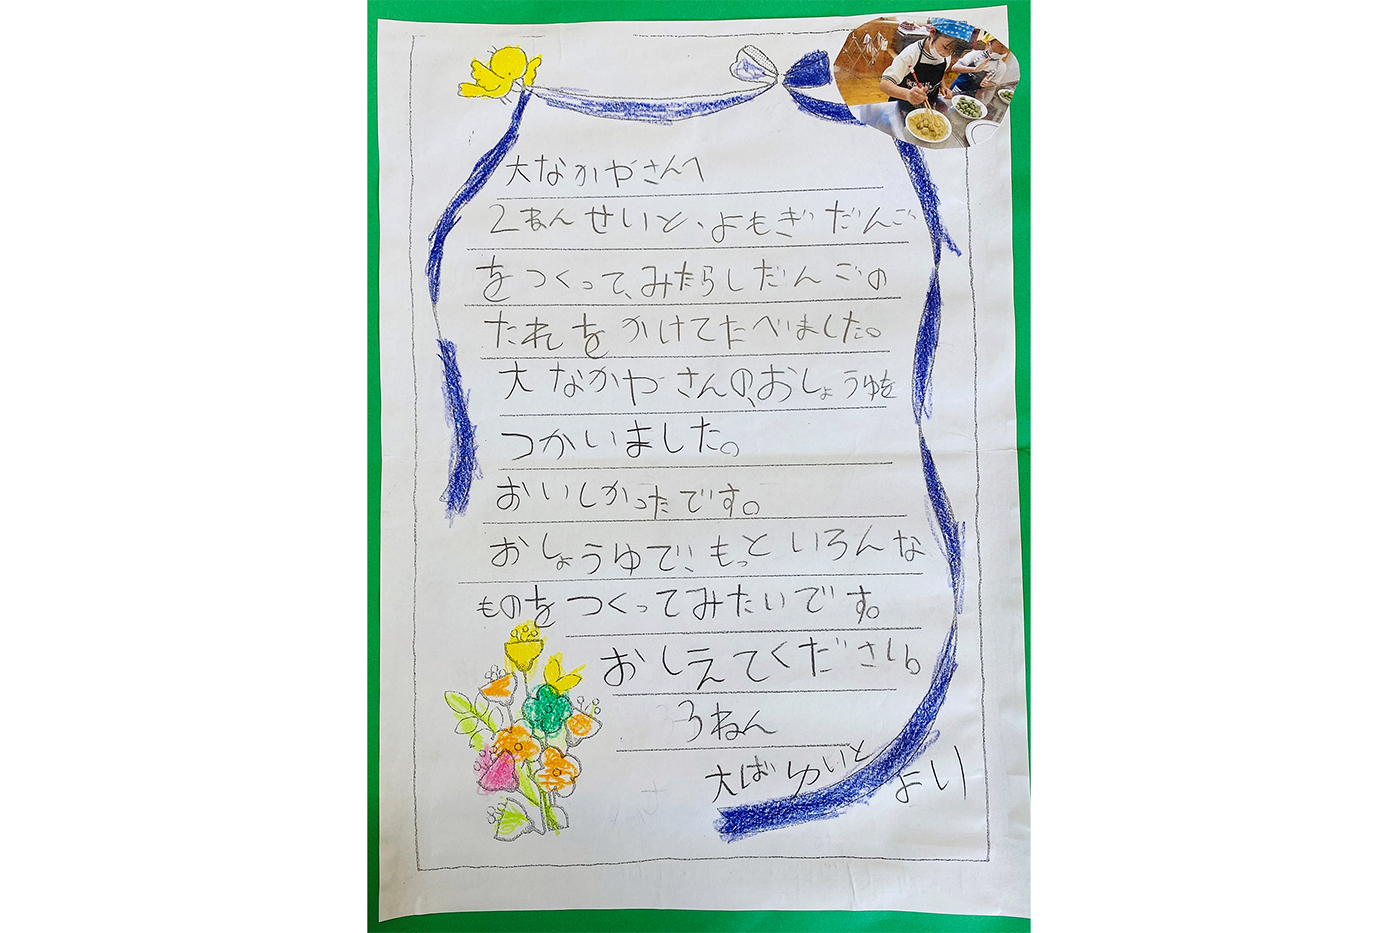 大なかやさんへ
2ねんせいと、よもぎだんご
をつくって、みたらしだんごの
たれをかけてたべました。
大なかやさんの、おしょうゆを
つかいました。
おいしかったです。
おしょうゆで、もっといろんな
ものをつくってみたいです。
おしえてください。
3ねん
大ばゆいとより